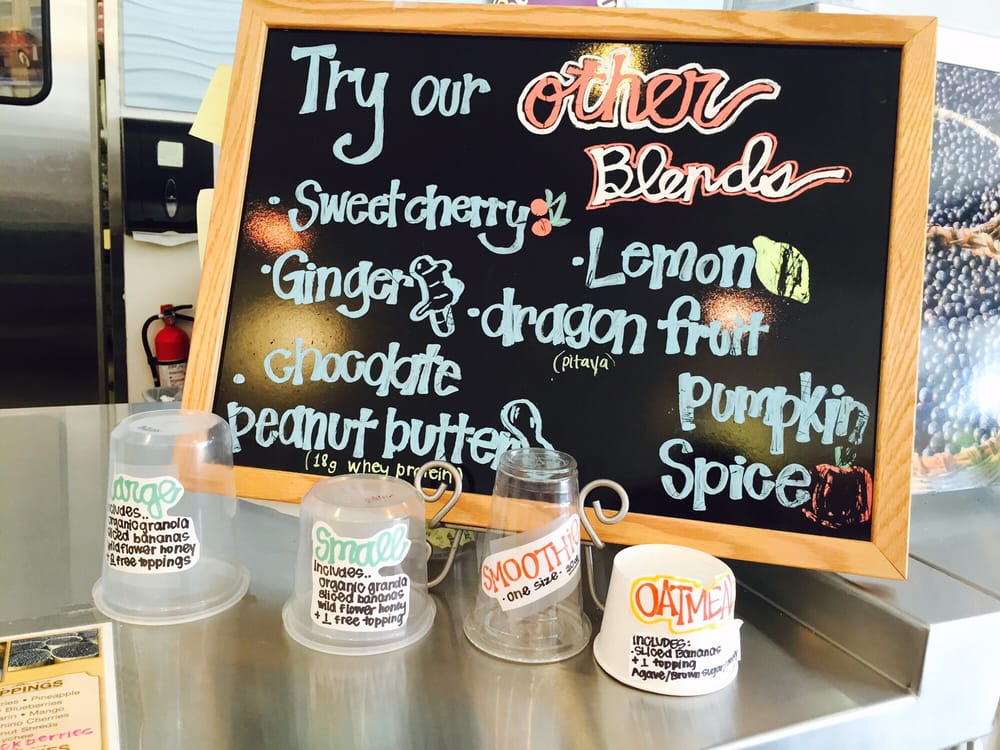 Try our other
Blends
• Sweet cherry
• Ginger
• Lemon
• dragon fruit
(pitaya)
• chocolate
peanut butter
(18g whey protein
pumpkin
Spice
Large
includes..
organic granola
sliced bananas
wildflower honey
free toppings
Small
includes..
organic granola
sliced bananas
wild flower honey
+ 1 free topping
SMOOTHIE
• one size - 20oz
OATMEAL
INCLUDES:
• SLICED BANANAS
+ 1 topping
Agave/Brown sugar/
PPINGS
• Pineapple
Blueberries
• Mango
Cherries
Shreds